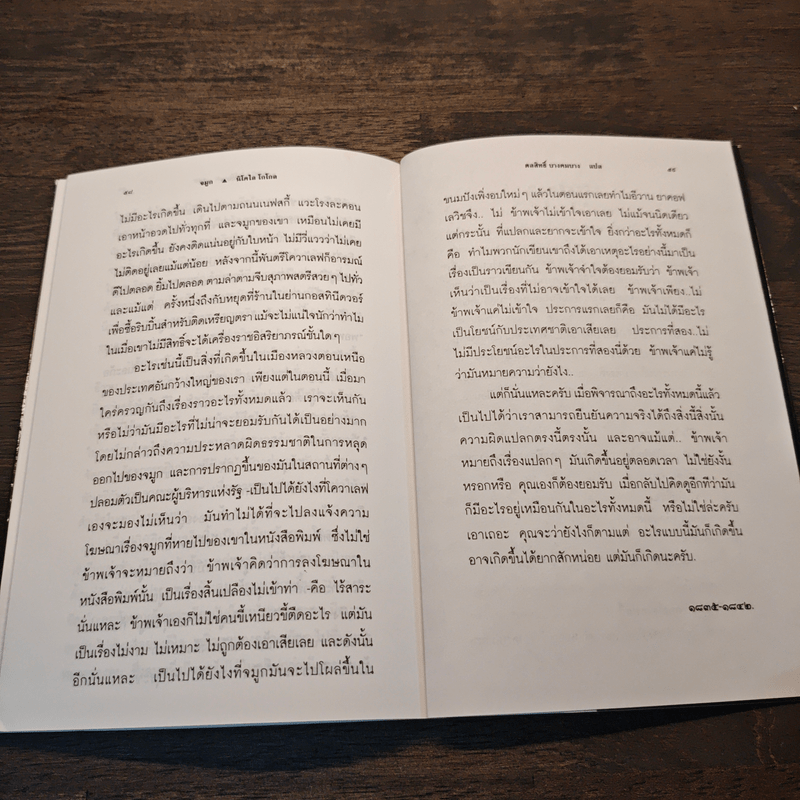 ๕๘
จมูก ▲ นิโคไล โกโกล
ไม่มีอะไรเกิดขึ้น เดินไปตามถนนเนฟสกี้ แวะโรงละคอน
เอาหน้าอวดไปทั่วทุกที่ และจมูกของเขา เหมือนไม่เคยมี
อะไรเกิดขึ้น ยังคงติดแน่นอยู่กับใบหน้า ไม่มีวี่แววว่าไม่เคย
ไม่ติดอยู่เลยแม้แต่น้อย หลังจากนี้พันตรีโควาเลฟก็อารมณ์
ดีไปตลอด ยิ้มไปตลอด ตามล่าตามจีบสุภาพสตรีสวยๆ ไปทั่ว
และแม้แต่ ครั้งหนึ่งถึงกับหยุดที่ร้านในย่านกอสทินีดวอร์
เพื่อซื้อริบบิ้นสำหรับติดเหรียญตรา แม้จะไม่แน่ใจนักว่าทำไม
ในเมื่อเขาไม่มีสิทธิ์จะได้เครื่องราชอิสริยาภรณ์ชั้นใดๆ
อะไรเช่นนี้เป็นสิ่งที่เกิดขึ้นในเมืองหลวงตอนเหนือ
ของประเทศอันกว้างใหญ่ของเรา เพียงแต่ในตอนนี้ เมื่อมา
ใคร่ครวญกันถึงเรื่องราวอะไรทั้งหมดแล้ว เราจะเห็นกัน
หรือไม่ว่ามันมีอะไรที่ไม่น่าจะยอมรับกันได้เป็นอย่างมาก
โดยไม่กล่าวถึงความประหลาดผิดธรรมชาติในการหลุด
ออกไปของจมูก และการปรากฏขึ้นของมันในสถานที่ต่างๆ
ปลอมตัวเป็นคณะผู้บริหารแห่งรัฐ -เป็นไปได้ยังไงที่โควาเลฟ
เองจะมองไม่เห็นว่า มันทำไม่ได้ที่จะไปลงแจ้งความ
โฆษณาเรื่องจมูกที่หายไปของเขาในหนังสือพิมพ์ ซึ่งไม่ใช่
ข้าพเจ้าจะหมายถึงว่า ข้าพเจ้าคิดว่าการลงโฆษณาใน
หนังสือพิมพ์นั้น เป็นเรื่องสิ้นเปลืองไม่เข้าท่า -คือ ไร้สาระ
นั่นแหละ ข้าพเจ้าเองก็ไม่ใช่คนขี้เหนียวขี้ตืดอะไร แต่มัน
เป็นเรื่องไม่งาม ไม่เหมาะ ไม่ถูกต้องเอาเสียเลย และดังนั้น
อีกนั่นแหละ เป็นไปได้ยังไงที่จมูกมันจะไปโผล่ขึ้นใน
ดลสิทธิ์ บางคมบาง แปล
๕๙
ขนมปังเพิ่งอบใหม่ๆ แล้วในตอนแรกเลยทำไมอีวาน ยาคอฟ
เลวิชจึง.. ไม่ ข้าพเจ้าไม่เข้าใจเอาเลย ไม่แม้จนนิดเดียว
แต่กระนั้น ที่แปลกและยากจะเข้าใจ ยิ่งกว่าอะไรทั้งหมดก็
คือ ทำไมพวกนักเขียนเขาถึงได้เอาเหตุอะไรอย่างนี้มาเป็น
เรื่องเป็นราวเขียนกัน ข้าพเจ้าจำใจต้องยอมรับว่า ข้าพเจ้า
เห็นว่าเป็นเรื่องที่ไม่อาจเข้าใจได้เลย ข้าพเจ้าเพียง..ไม่
ข้าพเจ้าแค่ไม่เข้าใจ ประการแรกเลยก็คือ มันไม่ได้มีอะไร
เป็นโยชน์กับประเทศชาติเอาเสียเลย ประการที่สอง..ไม่
ไม่มีประโยชน์อะไรในประการที่สองนี้ด้วย ข้าพเจ้าแค่ไม่รู้
ว่ามันหมายความว่ายังไง..
แต่ก็นั่นแหละครับ เมื่อพิจารณาถึงอะไรทั้งหมดนี้แล้ว
เป็นไปได้ว่าเราสามารถยืนยันความจริงได้ถึงสิ่งนี้สิ่งนั้น
ความผิดแปลกตรงนี้ตรงนั้น และอาจแม้แต่.. ข้าพเจ้า
หมายถึงเรื่องแปลกๆ มันเกิดขึ้นอยู่ตลอดเวลา ไม่ใช่ยังงั้น
หรอกหรือ คุณเองก็ต้องยอมรับ เมื่อกลับไปคิดดูอีกทีว่ามัน
ก็มีอะไรอยู่เหมือนกันในอะไรทั้งหมดนี้ หรือไม่ใช่ล่ะครับ
เอาเถอะ คุณจะว่ายังไงก็ตามแต่ อะไรแบบนี้มันก็เกิดขึ้น
อาจเกิดขึ้นได้ยากสักหน่อย แต่มันก็เกิดนะครับ.
๑๘๓๕-๑๘๔๒.